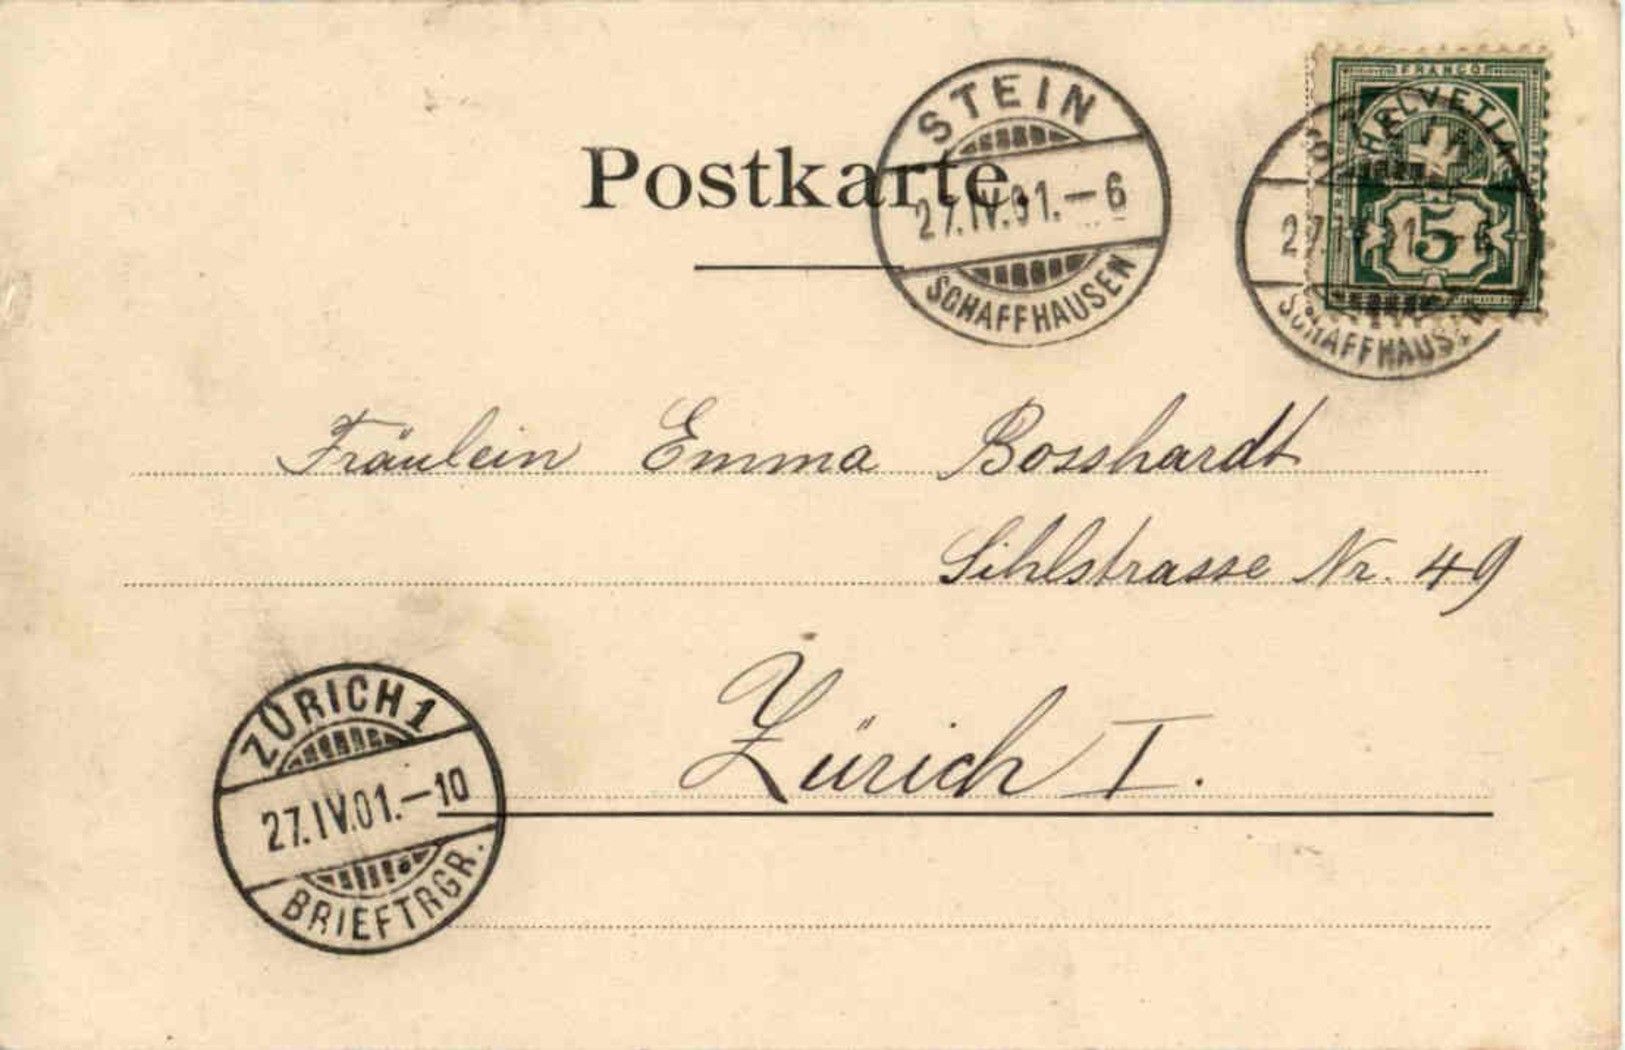 Postkarte.
STEIN
27.IV.01.–6
SCHAFFHAUSEN
FRANCO
HELVETIA
5
STEIN
27.IV.01.–6
SCHAFFHAUSEN
Fräulein Emma Bosshardt
Sihlstrasse Nr. 49
Zürich I.
ZÜRICH 1
27.IV.01.–10
BRIEFTRGR.